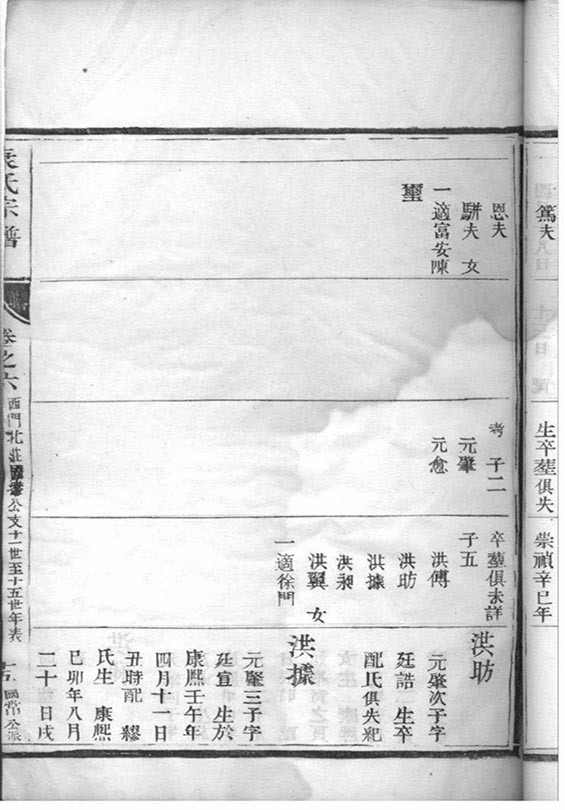 篤夫
生卒塟俱失
崇禎辛巳年
恩夫
駢夫 女
一適富安陳
璽
考 子二
元肇
元愈
卒塟俱未詳
子五
洪傅
洪助
洪據
洪昶
洪翼 女
一適徐門
洪助
元肇次子字
廷誥 生卒
配氏俱失紀
洪據
元肇三子字
廷宣 生於
康熙壬午年
四月十一日
丑時配 繆
氏生 康熙
己卯年八月
二十日戌
氏宗譜
卷之六
西門北莊 公支十一世至十五世年表
國常公派